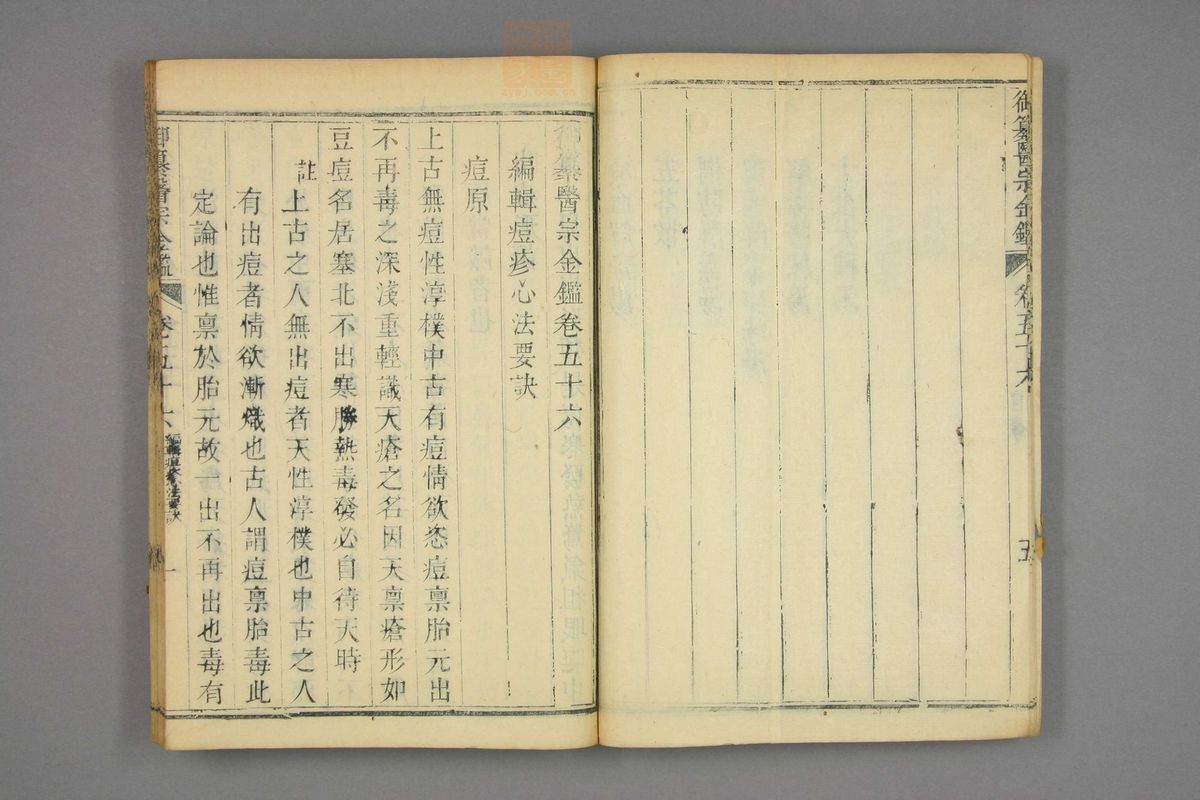 御纂醫宗金鑑 卷五十六
五
御纂醫宗金鑑卷五十六
編輯痘疹心法要訣
痘原
上古無痘性淳樸中古有痘情欲恣痘禀胎元出
不再毒之深淺重輕識天瘡之名因天禀瘡形如
豆痘名居塞北不出寒勝熱毒發必自待天時
註上古之人無出痘者天性淳樸也中古之人
有出痘者情欲漸熾也古人謂痘禀胎毒此
定論也惟禀於胎元故一出不再出也毒有
御纂醫宗金鑑 卷五十六 編輯痘疹心法要訣 一